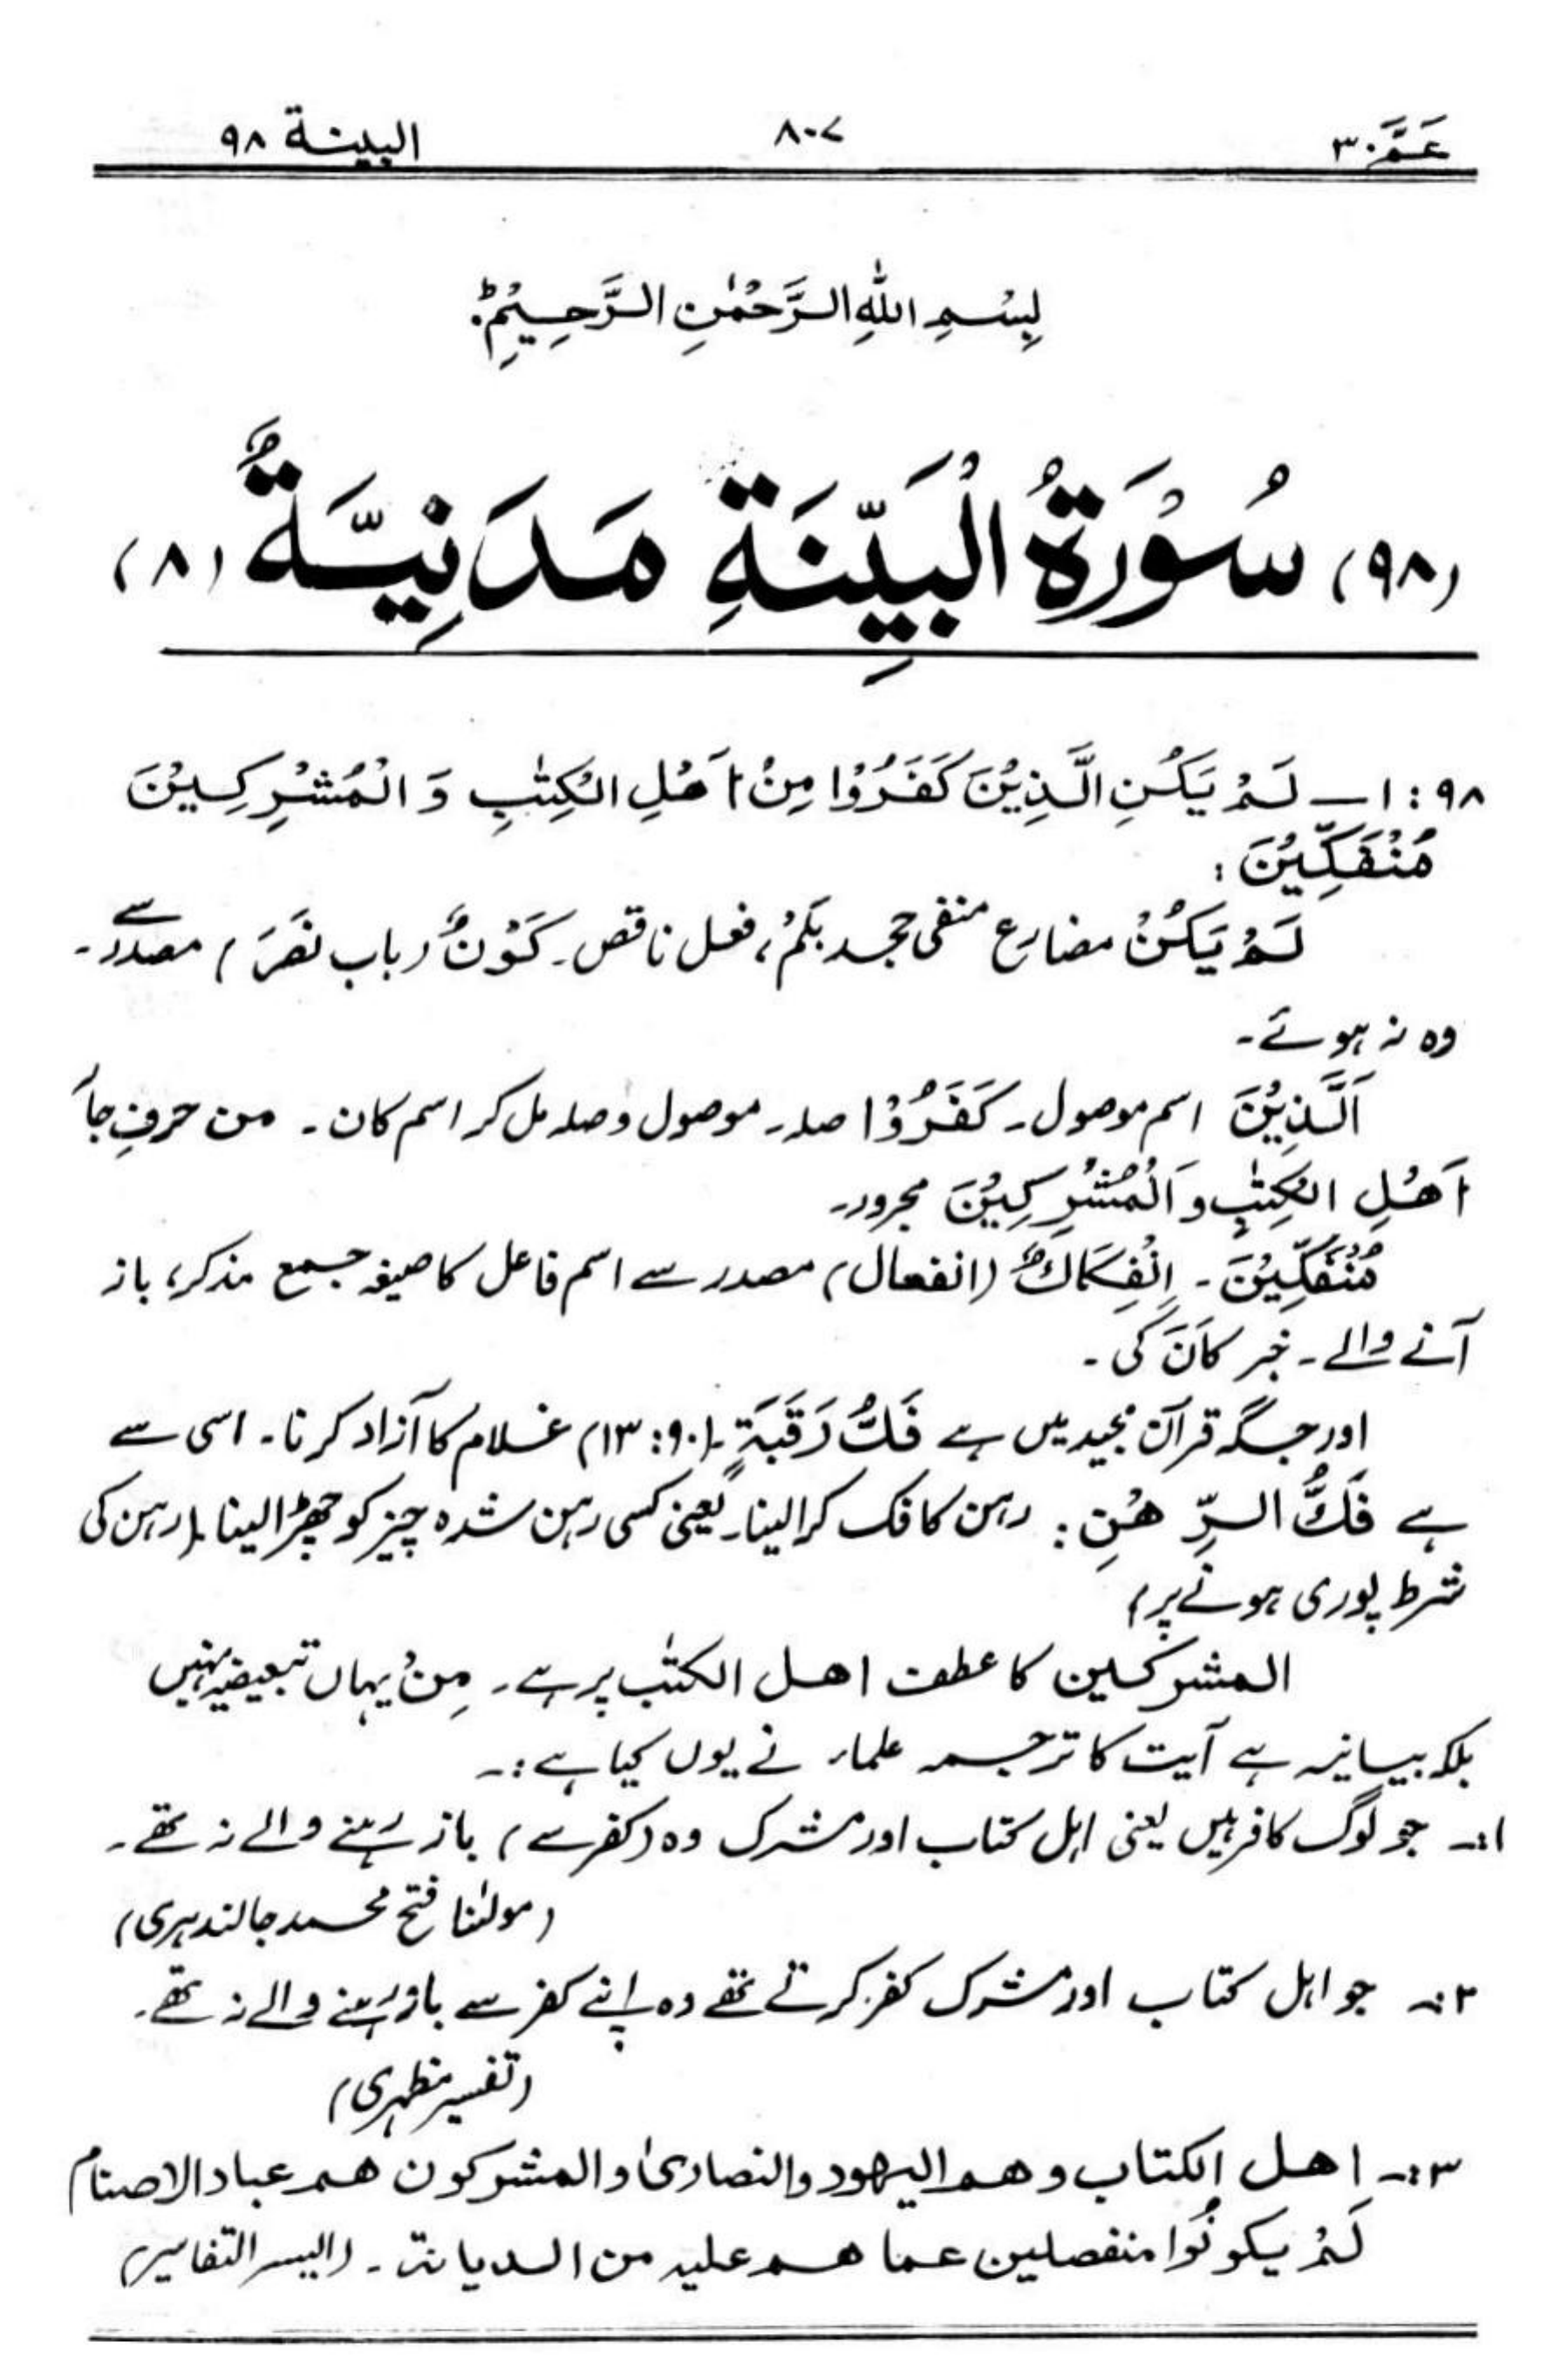 عَمَّ ۳۰ ۸۰۷ البینة ۹۸
بِسْمِ اللّٰهِ الرَّحْمٰنِ الرَّحِيْمِ ؕ
(۹۸) سُوْرَةُ الْبَيِّنَةِ مَدَنِيَّةٌ (۸)
۹۸ : ۱ — لَمْ يَكُنِ الَّذِيْنَ كَفَرُوْا مِنْ اَهْلِ الْكِتٰبِ وَ الْمُشْرِكِيْنَ
مُنْفَكِّيْنَ :
لَمْ يَكُنْ مضارع منفی جحد بلَمْ، فعل ناقص۔ كَوْنٌ (باب نصَرَ) مصدر سے۔
وہ نہ ہوئے۔
اَلَّذِيْنَ اسم موصول۔ كَفَرُوْا صلہ۔ موصول و صلہ مل کر اسم کان۔ من حرفِ جار
اَهْلِ الْكِتٰبِ و اَلْمُشْرِكِيْنَ مجرور۔
مُنْفَكِّيْنَ۔ اِنْفِكَاكٌ (انفعال) مصدر سے اسم فاعل کا صیغہ جمع مذکر، باز
آنے والے۔ خبر کَانَ کی۔
اور جگہ قرآن مجید میں ہے فَكُّ رَقَبَةٍ۔ (۹۰: ۱۳) غلام کا آزاد کرنا۔ اسی سے
ہے فَكُّ الرِّهْنِ : رہن کا فک کرا لینا۔ یعنی کسی رہن شدہ چیز کو چھڑا لینا۔ (رہن کی
شرط پوری ہونے پر)
المشرکین کا عطف اهل الکتٰب پر ہے۔ مِنْ یہاں تبعیضیہ نہیں
بلکہ بیانیہ ہے آیت کا ترجمہ علماء نے یوں کیا ہے :۔
۱:۔ جو لوگ کافر ہیں یعنی اہل کتاب اور مشرک وہ (کفر سے) باز رہنے والے نہ تھے۔
(مولٰنا فتح محمد جالندہری)
۲:۔ جو اہل کتاب اور مشرک کفر کرتے تھے وہ اپنے کفر سے باز رہنے والے نہ تھے۔
(تفسیر مظہری)
۳:۔ اهل الکتاب و هم الیهود والنصاریٰ و المشرکون هم عباد الاصنام
لَمْ یکونُوا منفصلین عما هم علیه من الدیانة۔ (ایسر التفاسیر)